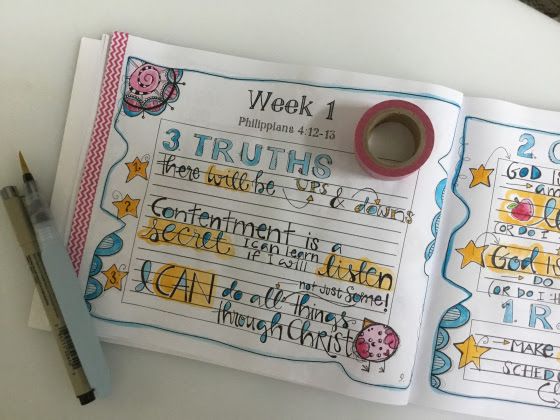 Week 1
Philippians 4:12-13
3 TRUTHS
1. there will be UPS & downs
2. Contentment is a
secret I can learn
if I will listen
3. I CAN do all things
not just some!
through Christ
9
2.
GOD
(OR DO I
God is
DO
(OR DO I
1. R
MAKE
SCHED